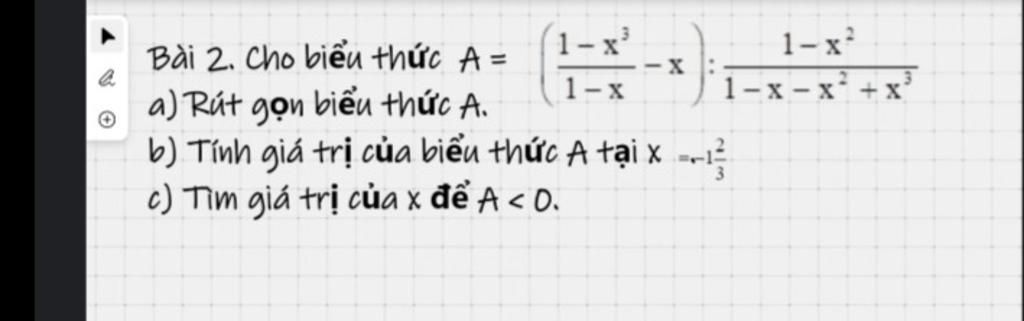 Bài 2. Cho biểu thức A = ((1 − x³)/(1 − x) − x) : (1 − x²)/(1 − x − x² + x³)
a) Rút gọn biểu thức A.
b) Tính giá trị của biểu thức A tại x = −1 2/3
c) Tìm giá trị của x để A < 0.